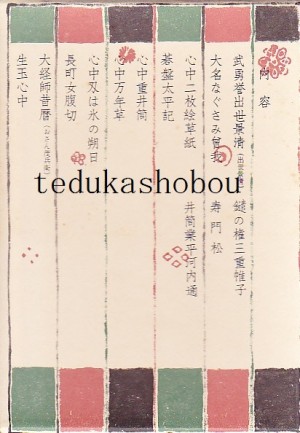 内容
武勇誉出世景清
鑓の権三重帷子
大名なぐさみ曽我
寿門松
心中二枚絵草紙
井筒業平河内通
碁盤太平記
心中重井筒
心中万年草
心中刃は氷の朔日
長町女腹切
大経師昔暦
生玉心中
tedukashobou